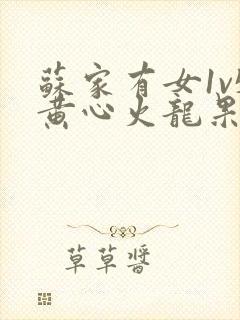 蘇家有女1v
黃心火龍果
草草醬